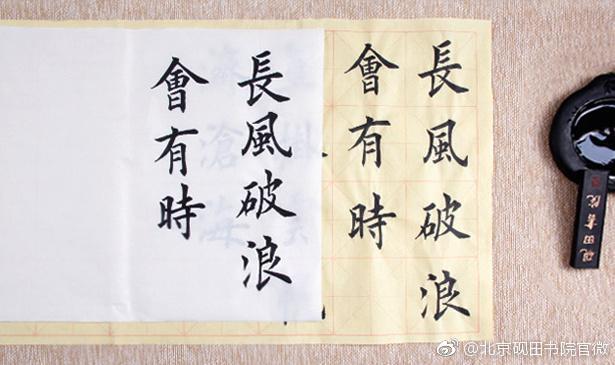 長風破浪
會有時
長風破浪
會有時
硯田書院
@北京砚田书院官微